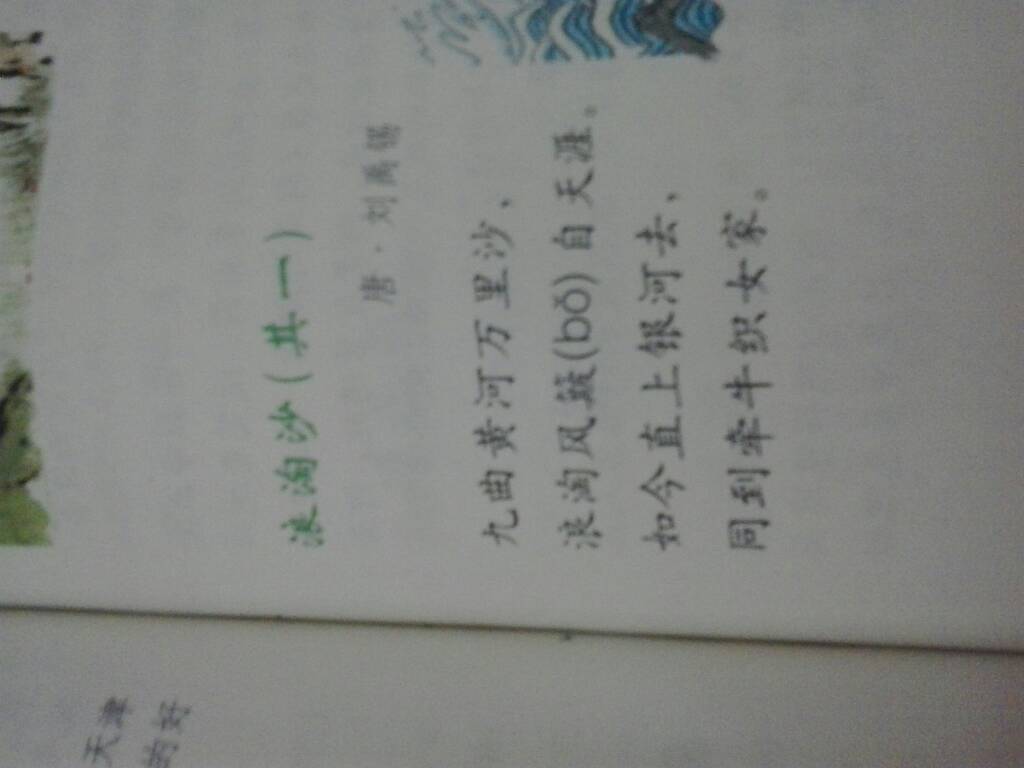 浪淘沙(其一)
唐·刘禹锡
九曲黄河万里沙,
浪淘风簸(bǒ)自天涯。
如今直上银河去,
同到牵牛织女家。
天津
的好